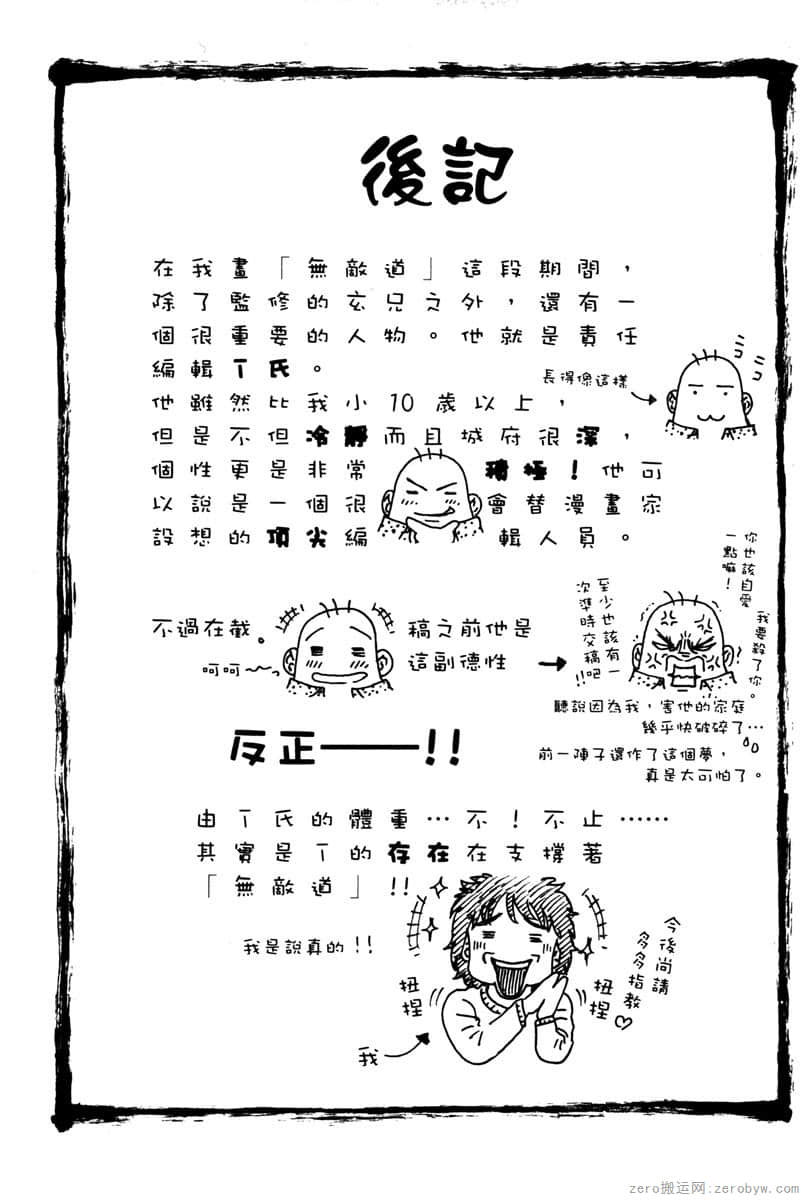 後記
在我畫「無敵道」這段期間，
除了監修的玄兄之外，還有一
個很重要的人物。他就是責任
編輯T氏。
長得像這樣
他雖然比我小10歲以上，
但是不但冷靜而且城府很深，
個性更是非常積極！他可
以說是一個很會替漫畫家
設想的頂尖編輯人員。
不過在截。稿之前他是
呵呵～～。這副德性
至少也該有一
次準時交稿吧!!
你也該自愛
一點嘛！
我要殺了你。
聽說因為我，害他的家庭
幾乎快破碎了…
前一陣子還作了這個夢，
真是太可怕了。
反正——!!
由T氏的體重…不！不止……
其實是T的存在在支撐著
「無敵道」!!
我是說真的!!
今後尚請
多多指教♡
扭捏
扭捏
我
zero搬运网:zerobyw.com